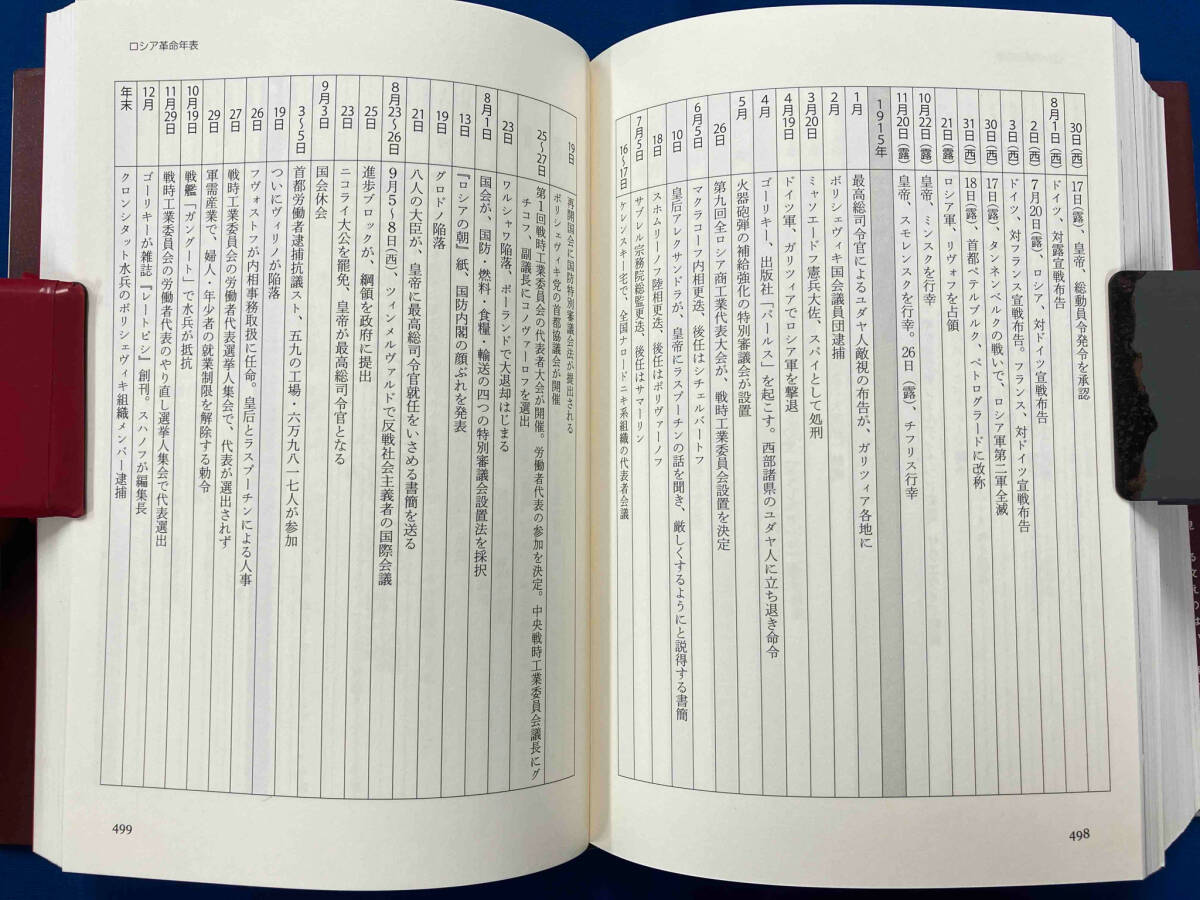 30日(西) 17日(露)、皇帝、総動員令発令を承認
8月1日(西) ドイツ、対露宣戦布告
2日(西) 7月20日(露)、ロシア、対ドイツ宣戦布告
3日(西) ドイツ、対フランス宣戦布告。フランス、対ドイツ宣戦布告
30日(西) 17日(露)、タンネンベルクの戦いで、ロシア軍第二軍全滅
31日(西) 18日(露)、首都ペテルブルク、ペトログラードに改称
21日(露) ロシア軍、リヴォフを占領
10月22日(露) 皇帝、ミンスクを行幸
11月20日(露) 皇帝、スモレンスクを行幸。26日(露)、チフリス行幸
1915年
1月 最高総司令官によるユダヤ人敵視の布告が、ガリツィア各地に
2月 ボリシェヴィキ国会議員団逮捕
3月20日 ミャソエードフ憲兵大佐、スパイとして処刑
4月19日 ドイツ軍、ガリツィアでロシア軍を撃退
4月 ゴーリキー、出版社「パールス」を起こす。西部諸県のユダヤ人に立ち退き命令
5月 火器砲弾の補給強化の特別審議会が設置
26日 第九回全ロシア商工業代表大会が、戦時工業委員会設置を決定
6月5日 マクラコーフ内相更迭、後任はシチェルバートフ
10日 皇后アレクサンドラが、皇帝にラスプーチンの話を聞き、厳しくするようにと説得する書簡
18日 スホムリーノフ陸相更迭、後任はポリヴァーノフ
7月5日 サブレル宗務院総監更迭、後任はサマーリン
16〜17日 ケレンスキー宅で、全国ナロードニキ系組織の代表者会議
498
ロシア革命年表
19日 再開国会に国防特別審議会法が提出される
ボリシェヴィキ党の首都協議会が開催
25〜27日 第1回戦時工業委員会の代表者大会が開催。労働者代表の参加を決定。中央戦時工業委員会議長にグ
チコフ、副議長にコノヴァーロフを選出
23日 ワルシャワ陥落、ポーランドで大退却はじまる
8月1日 国会が、国防・燃料・食糧・輸送の四つの特別審議会設置法を採択
13日 『ロシアの朝』紙、国防内閣の顔ぶれを発表
19日 グロドノ陥落
21日 八人の大臣が、皇帝に最高総司令官就任をいさめる書簡を送る
8月23〜26日 9月5〜8日(西)、ツィンメルヴァルドで反戦社会主義者の国際会議
25日 進歩ブロックが、綱領を政府に提出
23日 ニコライ大公を罷免、皇帝が最高総司令官となる
9月3日 国会休会
3〜5日 首都労働者逮捕抗議スト、五九の工場・六万九八一七人が参加
19日 ついにヴィリノが陥落
26日 フヴォストフが内相事務取扱に任命。皇后とラスプーチンによる人事
27日 戦時工業委員会の労働者代表選挙人集会で、代表が選出されず
29日 軍需産業で、婦人・年少者の就業制限を解除する勅令
10月19日 戦艦「ガングート」で水兵が抵抗
11月29日 戦時工業委員会の労働者代表のやり直し選挙人集会で代表選出
12月 ゴーリキーが雑誌『レートピシ』創刊。スハノフが編集長
年末 クロンシタット水兵のボリシェヴィキ組織メンバー逮捕
499